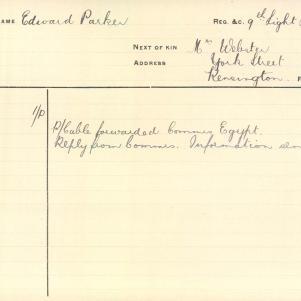 AME Edward Parker REG. &C. 9th Light
NEXT OF KIN Mrs Webster
ADDRESS York Street
Kensington.
P/Cable forwarded Commes Egypt.
Reply from Commes. Information